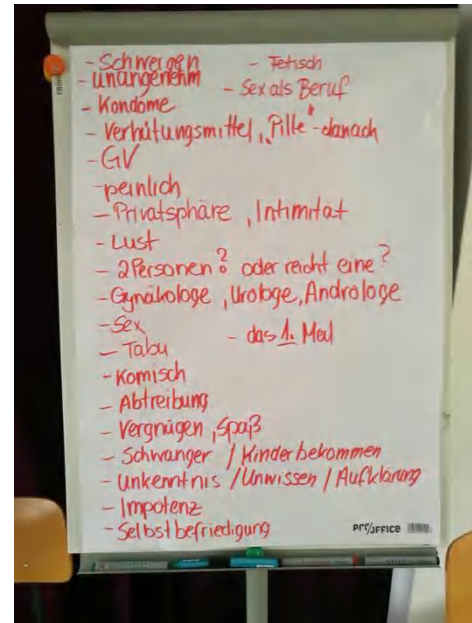 - Schweigen
- Fetisch
- unangenehm
- Sex als Beruf
- Kondome
- Verhütungsmittel, "Pille"-danach
- GV
- peinlich
- Privatsphäre, Intimität
- Lust
- 2 Personen? oder reicht eine?
- Gynäkologe, Urologe, Androloge
- Sex
- das 1. Mal
- Tabu
- Komisch
- Abtreibung
- Vergnügen, Spaß
- Schwanger / Kinder bekommen
- Unkenntnis / Unwissen / Aufklärung
- Impotenz
- Selbstbefriedigung
pro/office